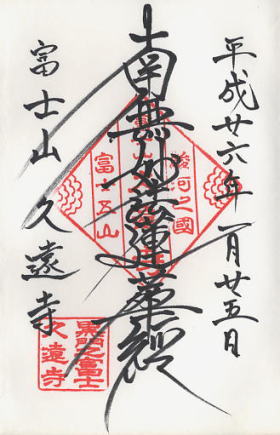 平成廿六年一月廿五日
南無妙法蓮華経
富士山久遠寺
駿河之國
富士五山
久遠寺